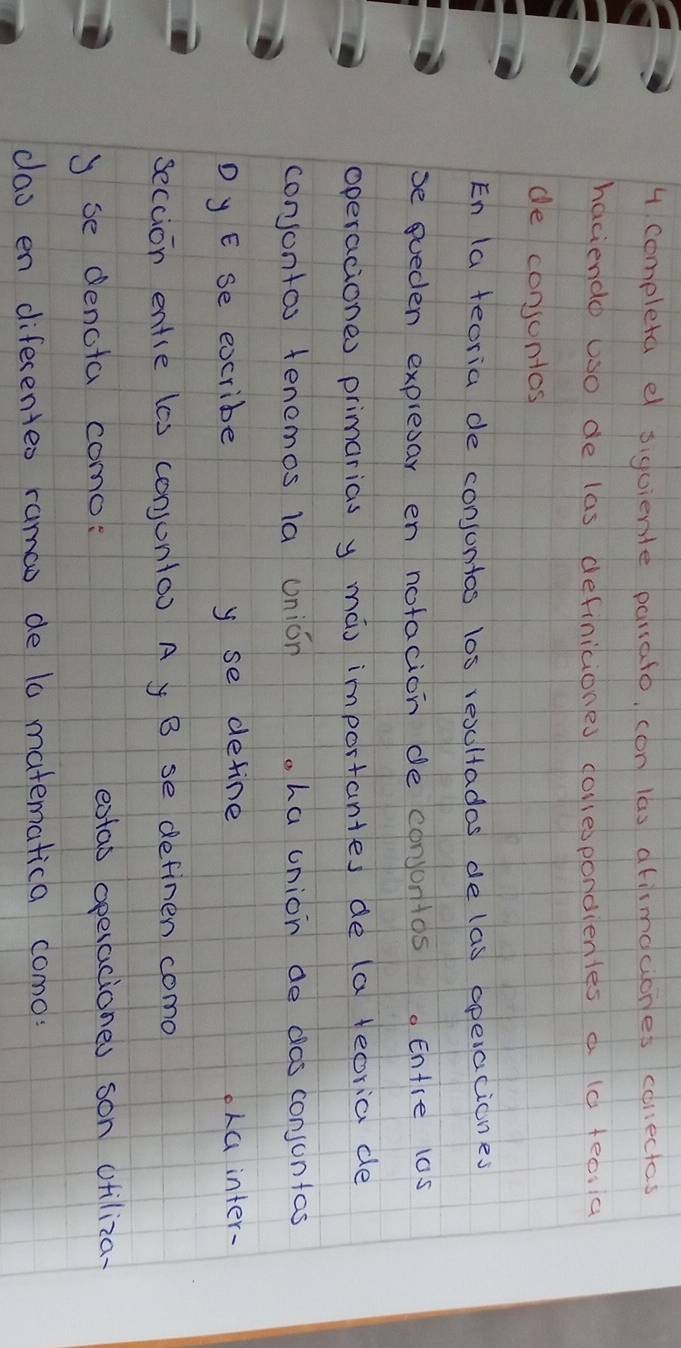 4. Completa el siguiente parrafo, con las afirmaciones correctas
haciendo uso de las definiciones correspondientes a la teoria
de conjuntos
En la teoría de conjuntos los resultados de las operaciones
se pueden expresar en notación de conjuntos . Entre las
operaciones primarias y más importantes de la teoria de
conjuntos tenemos la unión . La unión de dos conjuntos
D y E se escribe y se define . La inter-
sección entre los conjuntos A y B se definen como
y se denota como: estas operaciones son utiliza-
das en diferentes ramas de la matematica como: